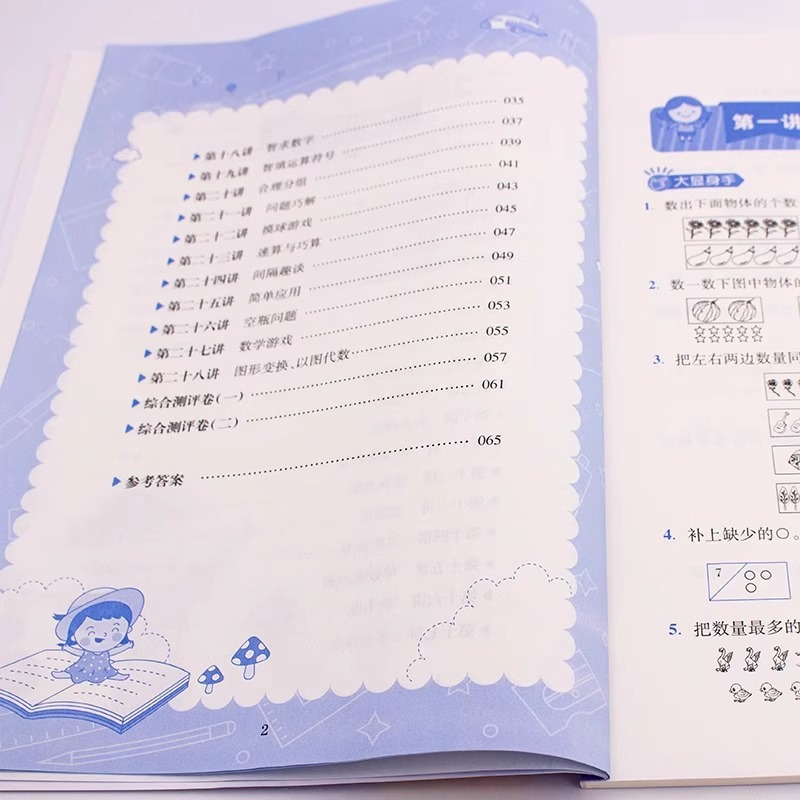 第十八讲 智求数字 035
第十九讲 智填运算符号 037
第二十讲 合理分组 039
第二十一讲 问题巧解 041
第二十二讲 摸球游戏 043
第二十三讲 速算与巧算 045
第二十四讲 间隔趣谈 047
第二十五讲 简单应用 049
第二十六讲 空瓶问题 051
第二十七讲 数学游戏 053
第二十八讲 图形变换、以图代数 055
综合测评卷(一) 057
综合测评卷(二) 061
参考答案 065
2
第一讲
大显身手
1. 数出下面物体的个数
2. 数一数下图中物体的
3. 把左右两边数量同
4. 补上缺少的○。
7
5. 把数量最多的